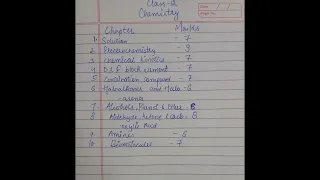 Class-12
Chemistry
Chapter Marks
1. Solution - 7
2 Electrochemistry - 9
3 Chemical kinetics - 7
4 D & F block element - 7
5 compound - 7
6 Haloalkanes and Halo - 6
arenes
7 Alcohols, Phenol & Ether - 6
8 Aldehyde, ketone & carbo - 8
xylic Acid
9 Amines - 6
10 Biomolecules - 7